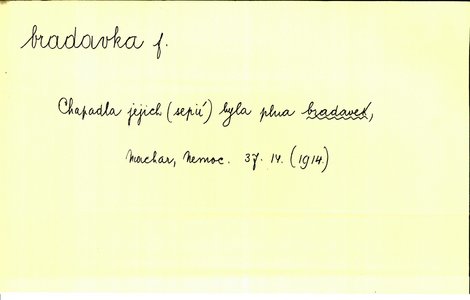 bradavka f.
Chapadla jejich (sepií) byla plna bradavek,
Machar, Nemoc. 37. 14. (1914)